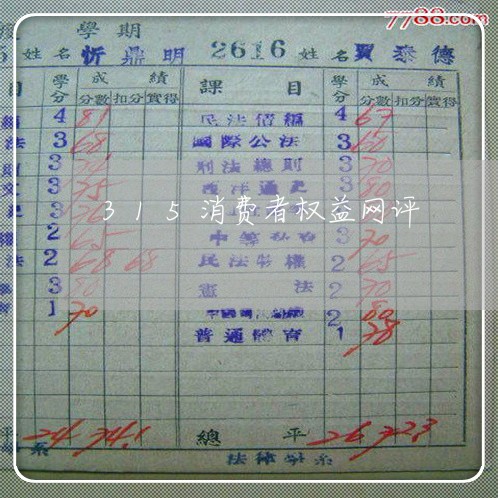 7788.com
學期
姓名 忻鼎明 2616 姓名 賈泰德
目 學分 成績 課目 學分 成績
分數 扣分 實得 分數 扣分 實得
4 81 民法債編 4 67
法 3 68 國際公法 3 60
3 刑法總則 3 70
3 75 西洋通史 3 80
315消費者权益网评
2 65 3 70
法 2 68 68 民法物權 2 65
3 80 憲法 2 70
1 70 2 80
普通體育 1 78
平 24 74.1 總平 26 72.3
系 法律學系